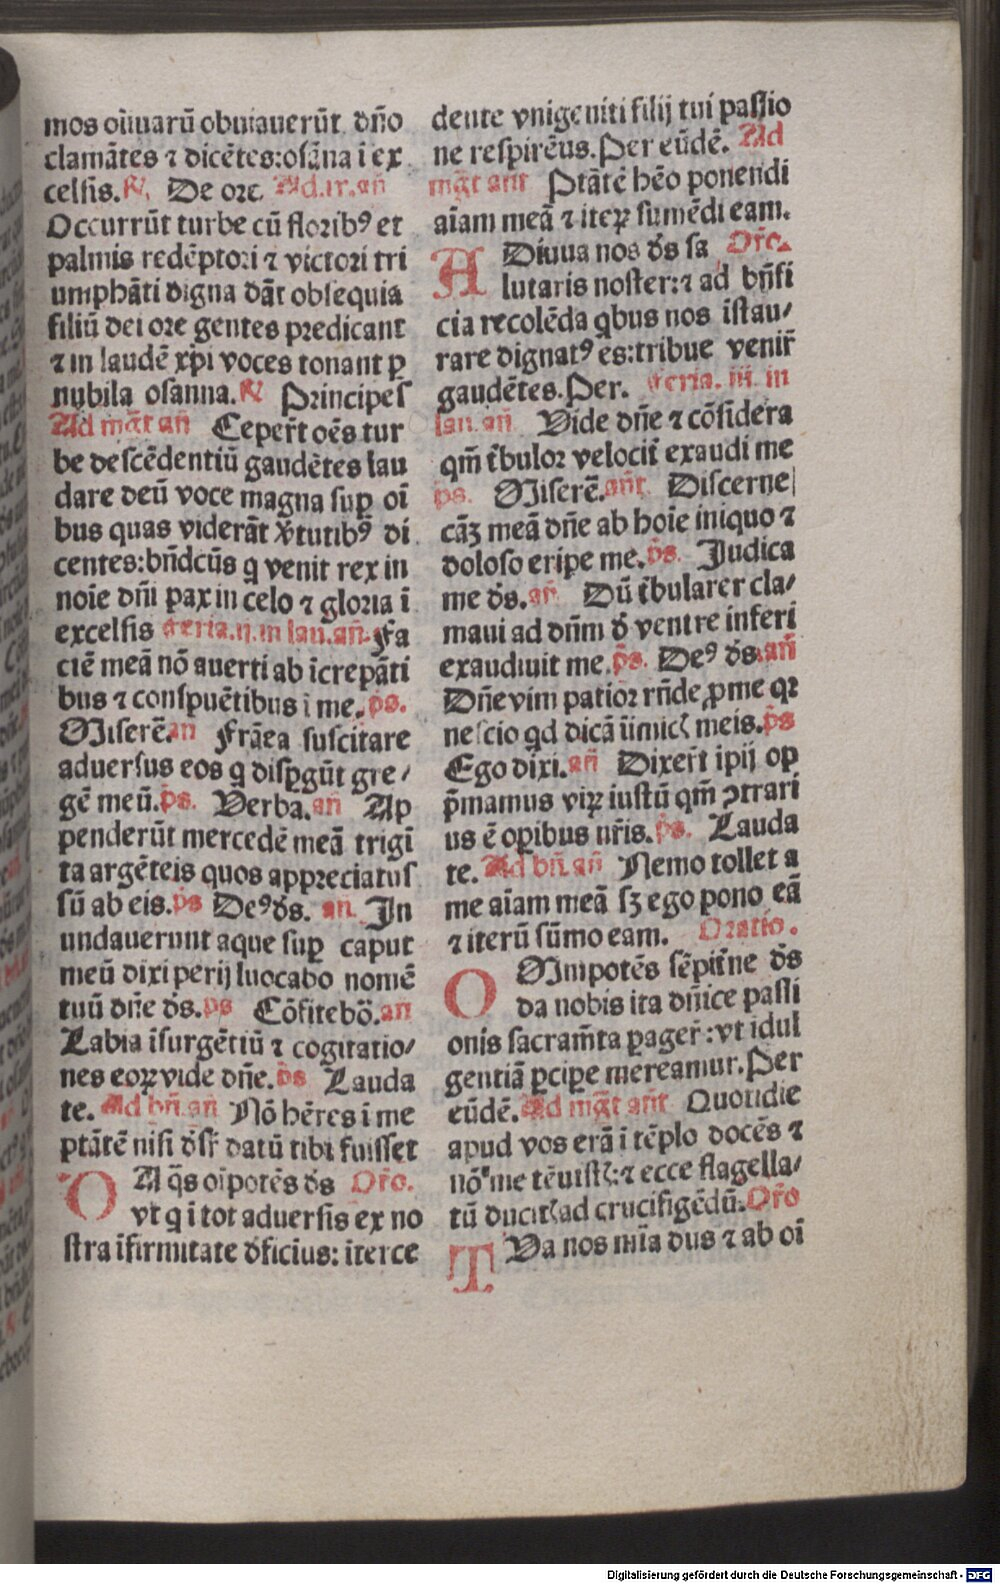 mos oliuarū obuiauerūt dn̄o
clamātes ⁊ dicētes:osāna i ex
celsis.℟. De ore. Ad.ix.an̄
Occurrūt turbe cū floribꝰ et
palmis redēptori ⁊ victori tri
umphāti digna dāt obsequia
filiū dei ore gentes predicant
⁊ in laudē xp̄i voces tonant ꝑ
nubila osanna.℟ Principes
Ad mag̃t an̄ Ceper̄t oēs tur
be descēdentiū gaudētes lau
dare deū voce magna suꝑ oī
bus quas viderāt v̓tutibꝰ di
centes:bn̄dcūs q̄ venit rex in
noīe dn̄i pax in celo ⁊ gloria ī
excelsis Feria.ij.in lau.an̄. Fa
ciē meā nō auerti ab īcrepāti
bus ⁊ conspuētibus ī me. ps.
Miserē.an̄ Frāea suscitare
aduersus eos q̄ dispgūt gre/
gē meū.p̄s. Verba.an̄ Ap
penderūt mercedē meā trigī
ta argēteis quos appreciatus
sū ab eis.p̄s Deꝰ d̄s. an̄. In
undauerunt aque suꝑ caput
meū dixi perij īuocabo nomē
tuū dn̄e d̄s.ps Cōfitebo.an̄
Labia īsurgētiū ⁊ cogitatio/
nes eoꝝ vide dn̄e.p̄s Lauda
te. Ad bn̄.an̄ Nō hēres ī me
ptātē nisi d̄sr̄ datū tibi fuisset
DA q̄s oīpotēs d̄s Or̄o.
vt q̄ ī tot aduersis ex no
stra īfirmitate d̄ficius: īterce
dente vnigeniti filij tui passio
ne respirēus.Per eūdē. Ad
mag̃t ant̄ Ptātē hēo ponendi
aīam meā ⁊ iteꝝ sumēdi eam.
ADiuua nos d̄s sa Or̄o.
lutaris noster:⁊ ad bn̄fi
cia recolēda q̄bus nos īstau/
rare dignatꝰ es:tribue venir̄
gaudētes.Per. Feria. iij. in
lau.an̄. Vide dn̄e ⁊ cōsidera
qm̄ t̄bulor velocit̄ exaudi me
ps. Miserē.ant̄. Discerne
cāꝫ meā dn̄e ab hoīe iniquo ⁊
doloso eripe me.p̄s. Judica
me d̄s.an̄ Dū t̄bularer cla/
maui ad dn̄m d̄ ventre inferi
exaudiuit me.p̄s. Deꝰ d̄s.an̄
Dn̄e vim patior rn̄de ꝓ me qꝛ
nescio qd dicā īimicꝭ meis.p̄s
Ego dixi.an̄ Dixer̄t ipij oꝑ
p̄mamus viꝝ iustū qm̄ ꝯtrari
us ē oꝑibus nr̄is.p̄s. Lauda
te. Ad bn̄.an̄ Nemo tollet a
me aīam meā sꝫ ego pono eā
⁊ iterū sūmo eam. Oratio.
OMnipotēs sēpit̄ne d̄s
da nobis ita dn̄ice passi
onis sacram̄ta ꝑager̄:vt idul
gentiā ꝑcipe mereamur.Per
eūdē.Ad mag̃t ant̄ Quotidie
apud vos erā ī tēplo docēs ⁊
nō me tēuistꝭ:⁊ ecce flagella/
tū ducitꝭ ad crucifigēdū.Or̄o
TVa nos mīa dus ⁊ ab oī
Digitalisierung gefördert durch die Deutsche Forschungsgemeinschaft - DFG